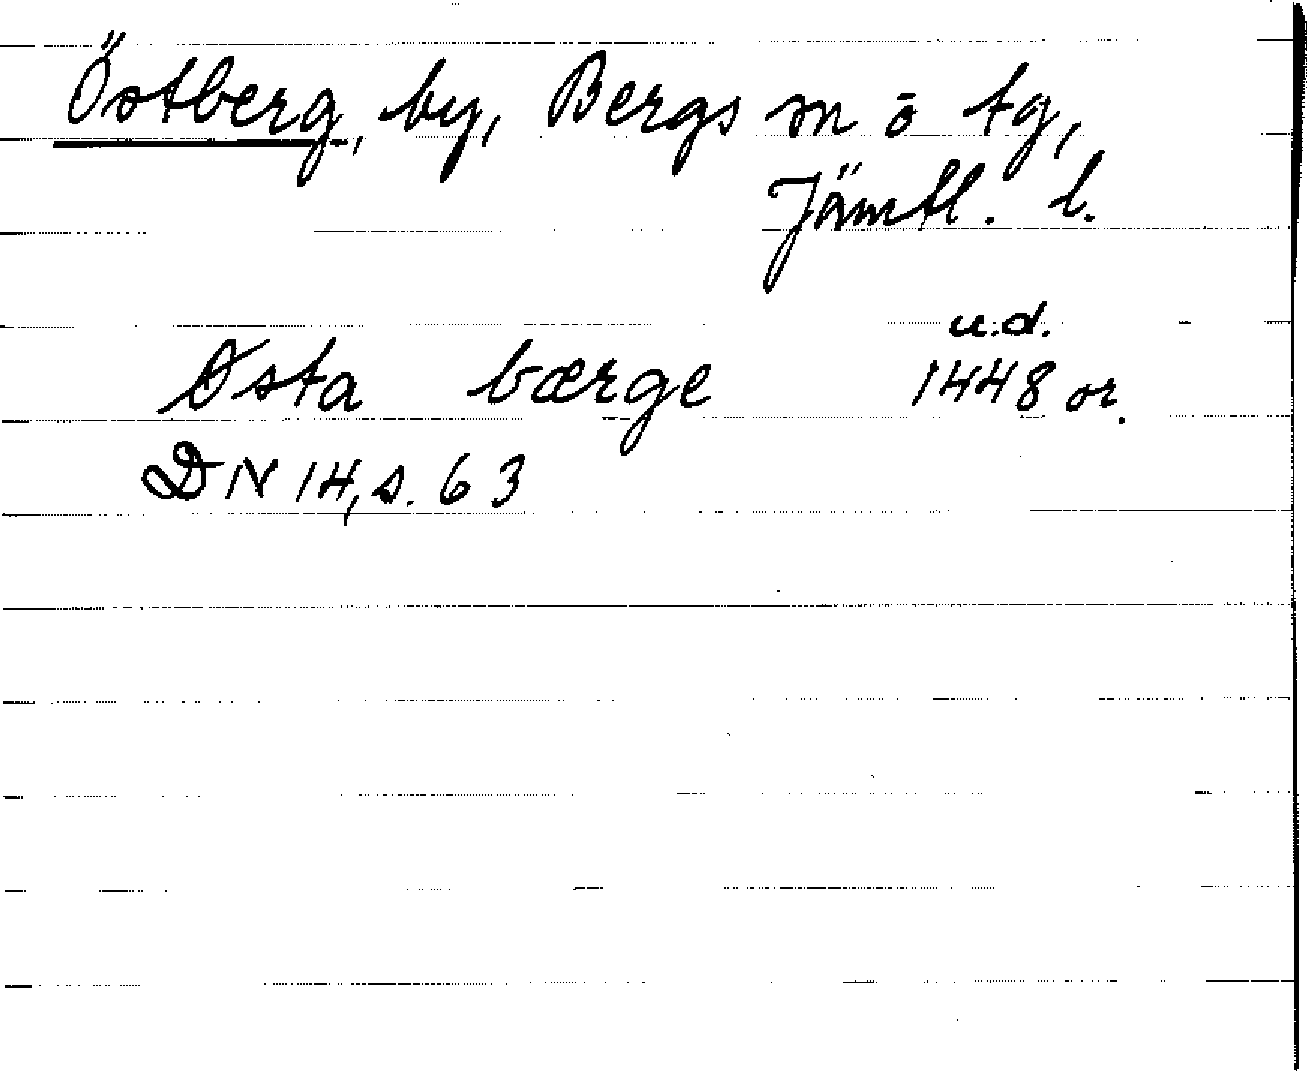 Östberg, by, Bergs sn o tg,
Jämtl. l.
u.d.
Østa bærge 1448 or.
DN 14, s. 63